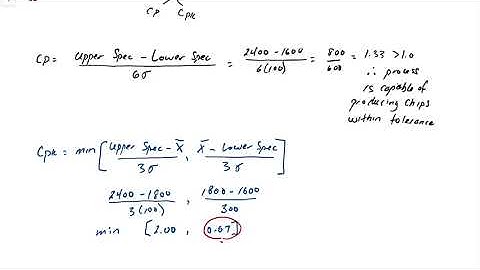 Cp Cpk
Cp = Upper Spec - Lower Spec / 6σ = 2400 - 1600 / 6(100) = 800 / 600 = 1.33 > 1.0
∴ process
is capable of
producing chips
within tolerance
Cpk = min[Upper Spec - X̄ / 3σ , X̄ - Lower Spec / 3σ]
2400 - 1800 / 3(100) , 1800 - 1600 / 300
min [2.00 , 0.67]